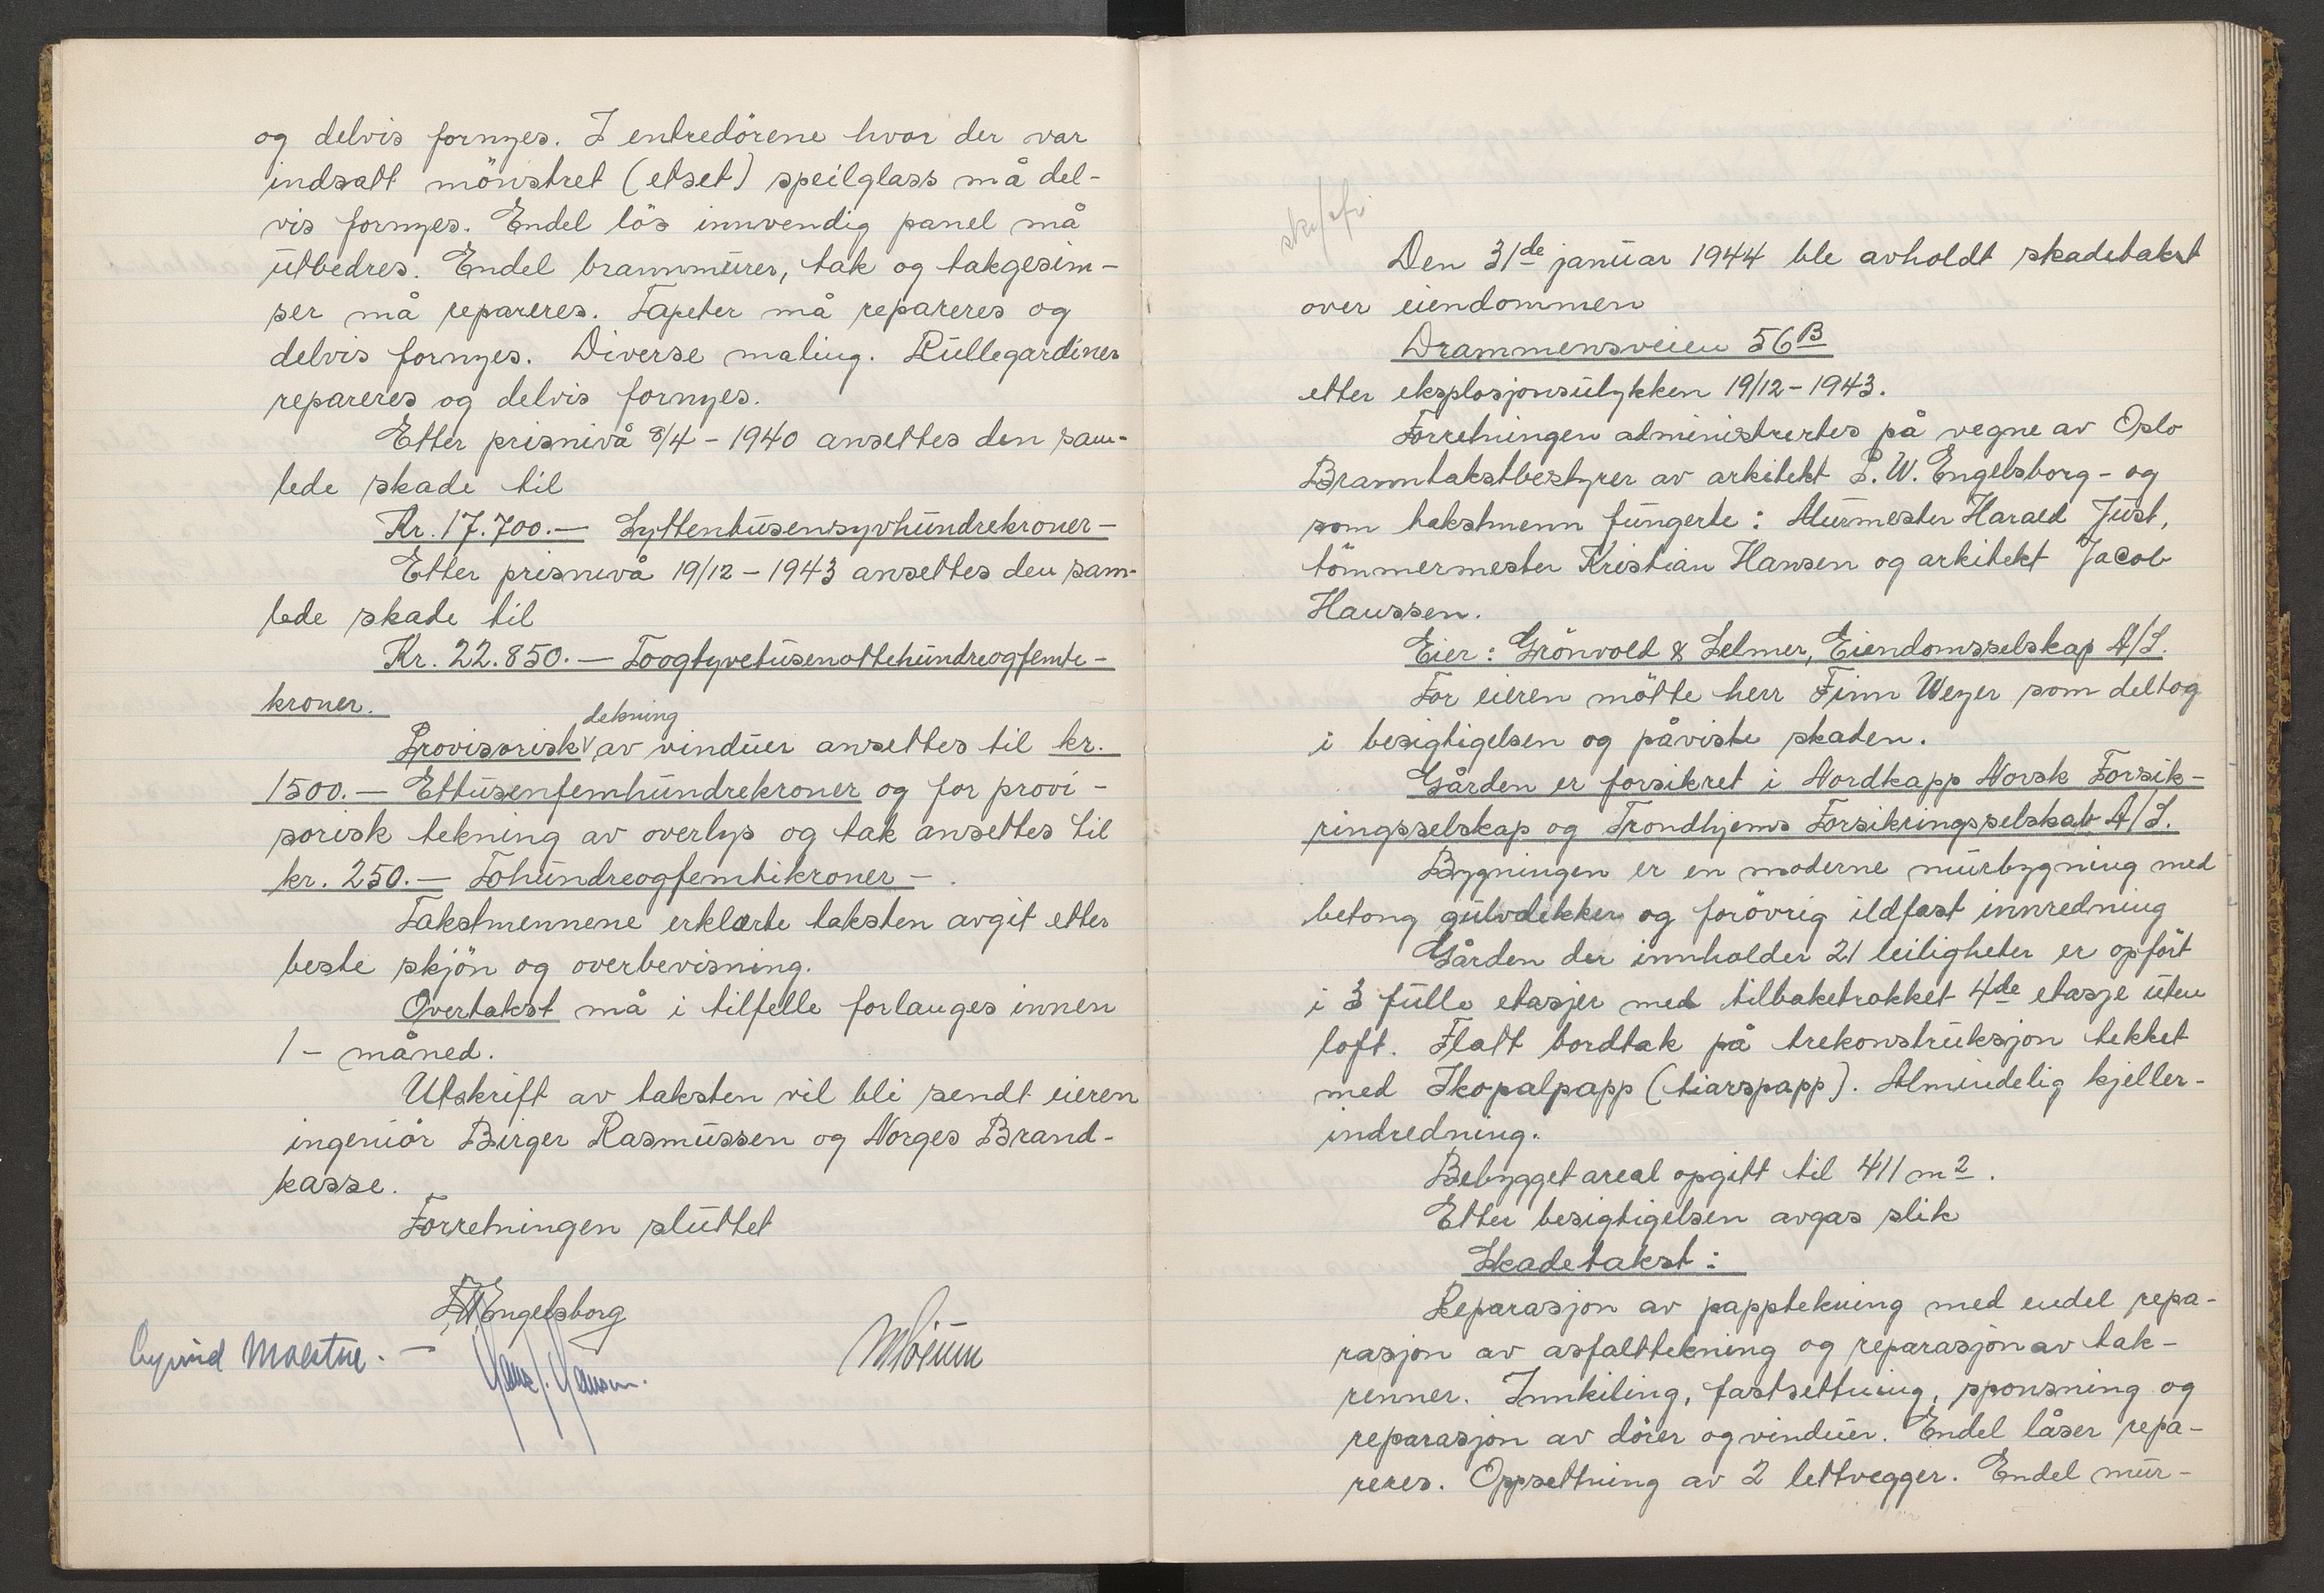 og delvis fornyes. I entredörene hvor der var
indsatt mönstret (etset) speilglass må del-
vis fornyes. Endel lös innvendig panel må
utbedres. Endel brannmurer, tak og takgesim-
ser må repareres. Tapeter må repareres og
delvis fornyes. Diverse maling. Rullegardiner
repareres og delvis fornyes.
Etter prisnivå 8/4 - 1940 ansettes den sam-
lede skade til
Kr. 17.700.— Syttentusensyvhundrekroner—
Etter prisnivå 19/12 - 1943 ansettes den sam-
lede skade til
Kr. 22.850.— Toogtyvetusenottehundreogfemti-
kroner.
dekning
Provisorisk av vinduer ansettes til kr.
1500.— Ettusenfemhundrekroner og for provi-
sorisk tekning av overlys og tak ansettes til
kr. 250.— Tohundreogfemtikroner—.
Takstmennene erklærte taksten avgit etter
beste skjön og overbevisning.
Overtakst må i tilfelle forlanges innen
1 - måned.
Utskrift av taksten vil bli sendt eieren
ingeniör Birger Rasmussen og Norges Brand-
kasse.
Forretningen sluttet
Engelsborg
Hans J. Hansen.
Den 31de januar 1944 ble avholdt skadetakst
over eiendommen
Drammensveien 56B
etter eksplosjonsulykken 19/12 - 1943.
Forretningen administrertes på vegne av Oslo
Branntakstbestyrer av arkitekt P. W. Engelsborg - og
som takstmenn fungerte: Murmester Harald Just,
tömmermester Kristian Hansen og arkitekt Jacob
Hanssen.
Eier: Grönvold & Selmer, Eiendomsselskap A/S.
For eieren mötte herr Finn Weyer som deltog
i besigtigelsen og påviste skaden.
Gården er forsikret i Nordkapp Norsk Forsik-
ringsselskap og Trondhjems Forsikringsselskab A/S.
Bygningen er en moderne murbygning med
betong gulvdekker og forövrig ildfast innredning
Gården der innholder 21 leiligheter er opfört
i 3 fulle etasjer med tilbaketrokket 4de etasje uten
loft. Flatt bordtak på trekonstruksjon tekket
med Ikopalpapp (tiarspapp). Almindelig kjeller-
indredning.
Bebygget areal opgitt til 411 m2.
Etter besigtigelsen avgas slik
Skadetakst:
Reparasjon av papptekning med endel repa-
rasjon av asfalttekning og reparasjon av tak-
renner. Innkiling, fastsettning, sponsning og
reparasjon av dörer og vinduer. Endel låser repa-
reres. Oppsettning av 2 lettvegger. Endel mur-